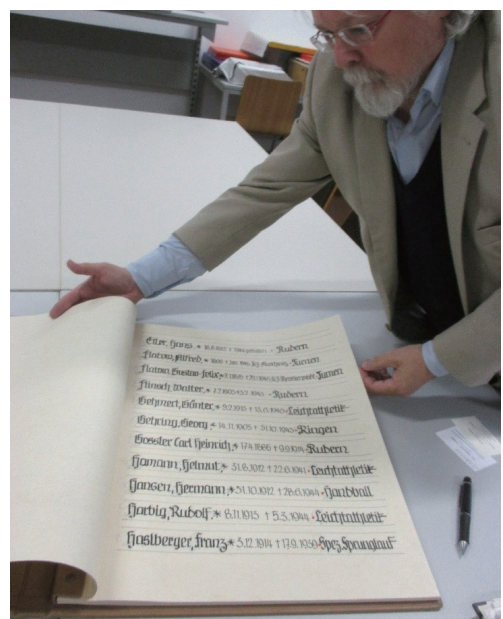 Eiler, Hans, * Rudern
Flatow, Alfred, * Turnen
Flatow, Gustav Felix, * Turnen
Flinsch, Walter, * Rudern
Gehmert, Günter, * 5.2.1913 † Leichtathletik
Gehring, Georg * 14.11.1903 † 31.10.1943 Ringen
Gossler Carl Heinrich, * 17.4.1886 † 9.9.1914 Rudern
Hamann, Helmut, * 31.8.1912 † 22.6.1941 Leichtathletik
Hansen, Hermann, * 31.10.1912 † 28.6.1944 Handball
Harbig, Rudolf, * 8.11.1913 † 5.3.1944 Leichtathletik
Haslberger, Franz * 3.12.1914 † 17.9.1939 Spez. Sprunglauf